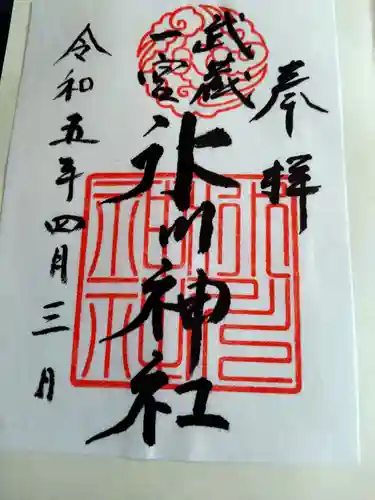 奉拝
武蔵
一宮
氷川神社
令和五年四月三日
氷川
神社